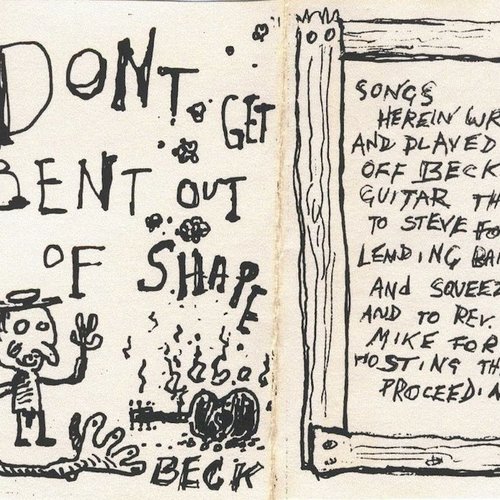 DONT
GET
BENT OUT
OF SHAPE
BECK
SONGS
HEREIN WR
AND PLAYED
OFF BECK
GUITAR TH
TO STEVE FO
LENDING BA
AND SQUEEZ
AND TO REV.
MIKE FOR
HOSTING TH
PROCEEDIN